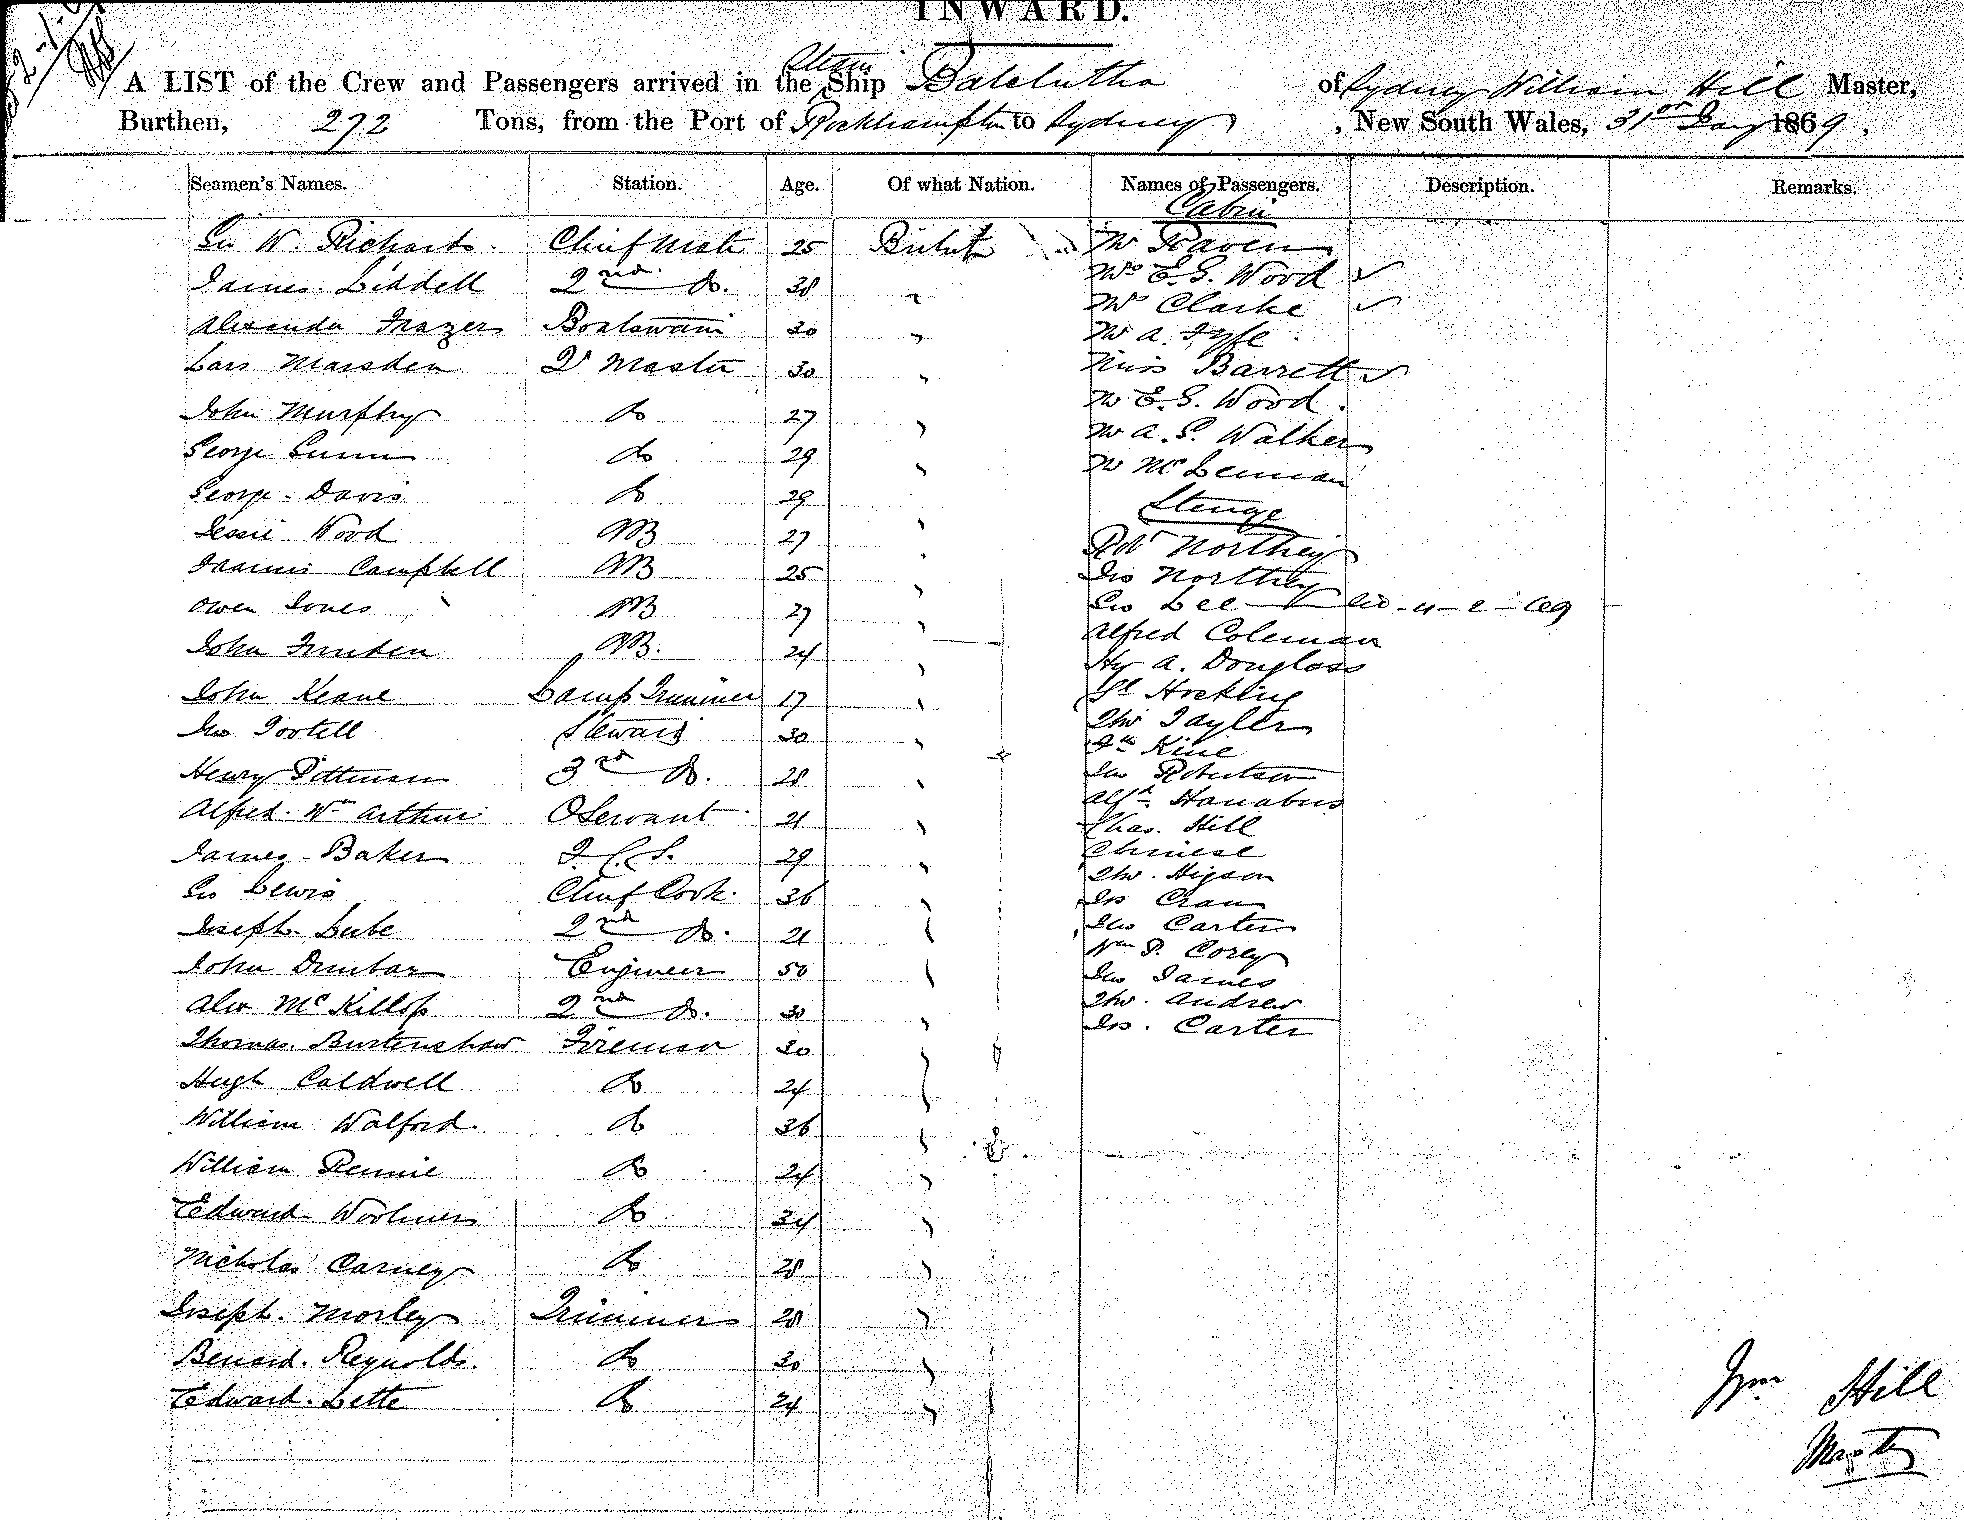 INWARD.
A LIST of the Crew and Passengers arrived in the Steam Ship Balclutha of Sydney William Hill Master,
Burthen, 272 Tons, from the Port of Rockhampton to Sydney, New South Wales, 31st 1869.
Seamen's Names. Station. Age. Of what Nation. Names of Passengers. Description. Remarks.
Cabin
Geo W. Richards Chief Mate 25 British Mr Raven
James Liddell 2nd Do. 38 " Mrs E.G. Wood ✓
Mrs Clarke ✓
Alexander Frazer Boatswain 30 " Mr A. Fyfe
Lars Marsden Qr Master 30 " Miss Barrett ✓
John Murphy Do 27 " Mr E.G. Wood.
George Gunn do 29 " Mr A.S. Walker
Mr McLennan
George Davis Do 29 " Steerage
Jessie Wood AB 27 " Robt Northey
Francis Campbell AB 25 " Jno Northey
Owen Jones AB 27 " Geo Lee
John AB. 24 " Alfred Coleman
Hy A. Douglass
John Keane Lamp Trimmer 17 " Hocking
Jno Tortell Steward 30 " Thos Tayler
Kine
Henry Pittman 3rd Do. 28 " Jno Robertson
Alfred Wm Arthur Servant 21 " Alfd Hanabus
Chas. Hill
James Baker 29 " Chinese
Geo Lewis Chief Cook. 36 " Thos. Higson
Jas Cran
Joseph 2nd Do. 21 " Jno Carter
Wm P. Corey
John Dunbar Engineer 50 " Jno James
Alex McKillop 2nd Do. 30 " Thos. Andrew
Thomas Burtenshaw Fireman 30 " Jas. Carter
Hugh Caldwell Do 24 "
William Walford Do 36 "
William Rennie Do 24 "
Edward Woolmer Do 34 "
Nicholas Carney Do 28 "
Joseph Morley Trimmer 28 "
Benard Reynolds. Do 30 "
Edward Lette Do 24 "
Wm Hill
Master